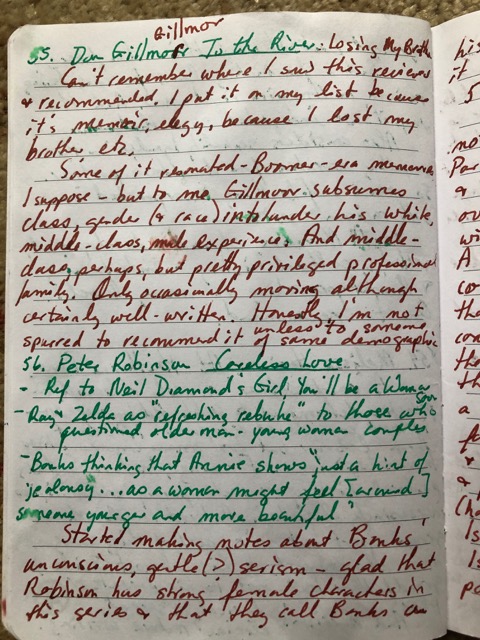 Gillmor
55. Don Gillmor To the River: Losing My Broth
Can't remember where I saw this reviewed
& recommended. I put it on my list because
it's memoir, elegy, because I lost my
brother etc.
Some of it resonated - Boomer-era memories
I suppose - but to me, Gillmoor subsumes
class, gender (& race) under his white,
middle-class, male experience. And middle-
class, perhaps, but pretty privileged professional
family. Only occasionally moving although
certainly well-written. Honestly I'm not
spurred to recommend it unless to someone
of same demographic
56. Peter Robinson Careless Love
- Ref to Neil Diamond's Girl You'll be a Woman Soon
- Ray & Zelda as "refreshing rebuke" to those who
questioned older man - young woman couples
- Banks thinking that Annie shows "just a hint of
jealousy... as a woman might feel [around]
someone younger and more beautiful"
Started making notes about Banks'
unconscious, gentle (?) sexism - glad that
Robinson has strong female characters in
this series & that they call Banks on
his
it
5
not
Par
&
ov
wi
A
co
tha
con
the
th
a
f
&
&
(ha
Is
Is
po